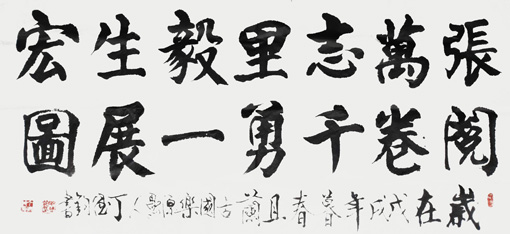 張閱
萬卷
志千
里勇
毅一
生展
宏圖
歲在戊戌年暮春且蘭古國樂原墨人丁書